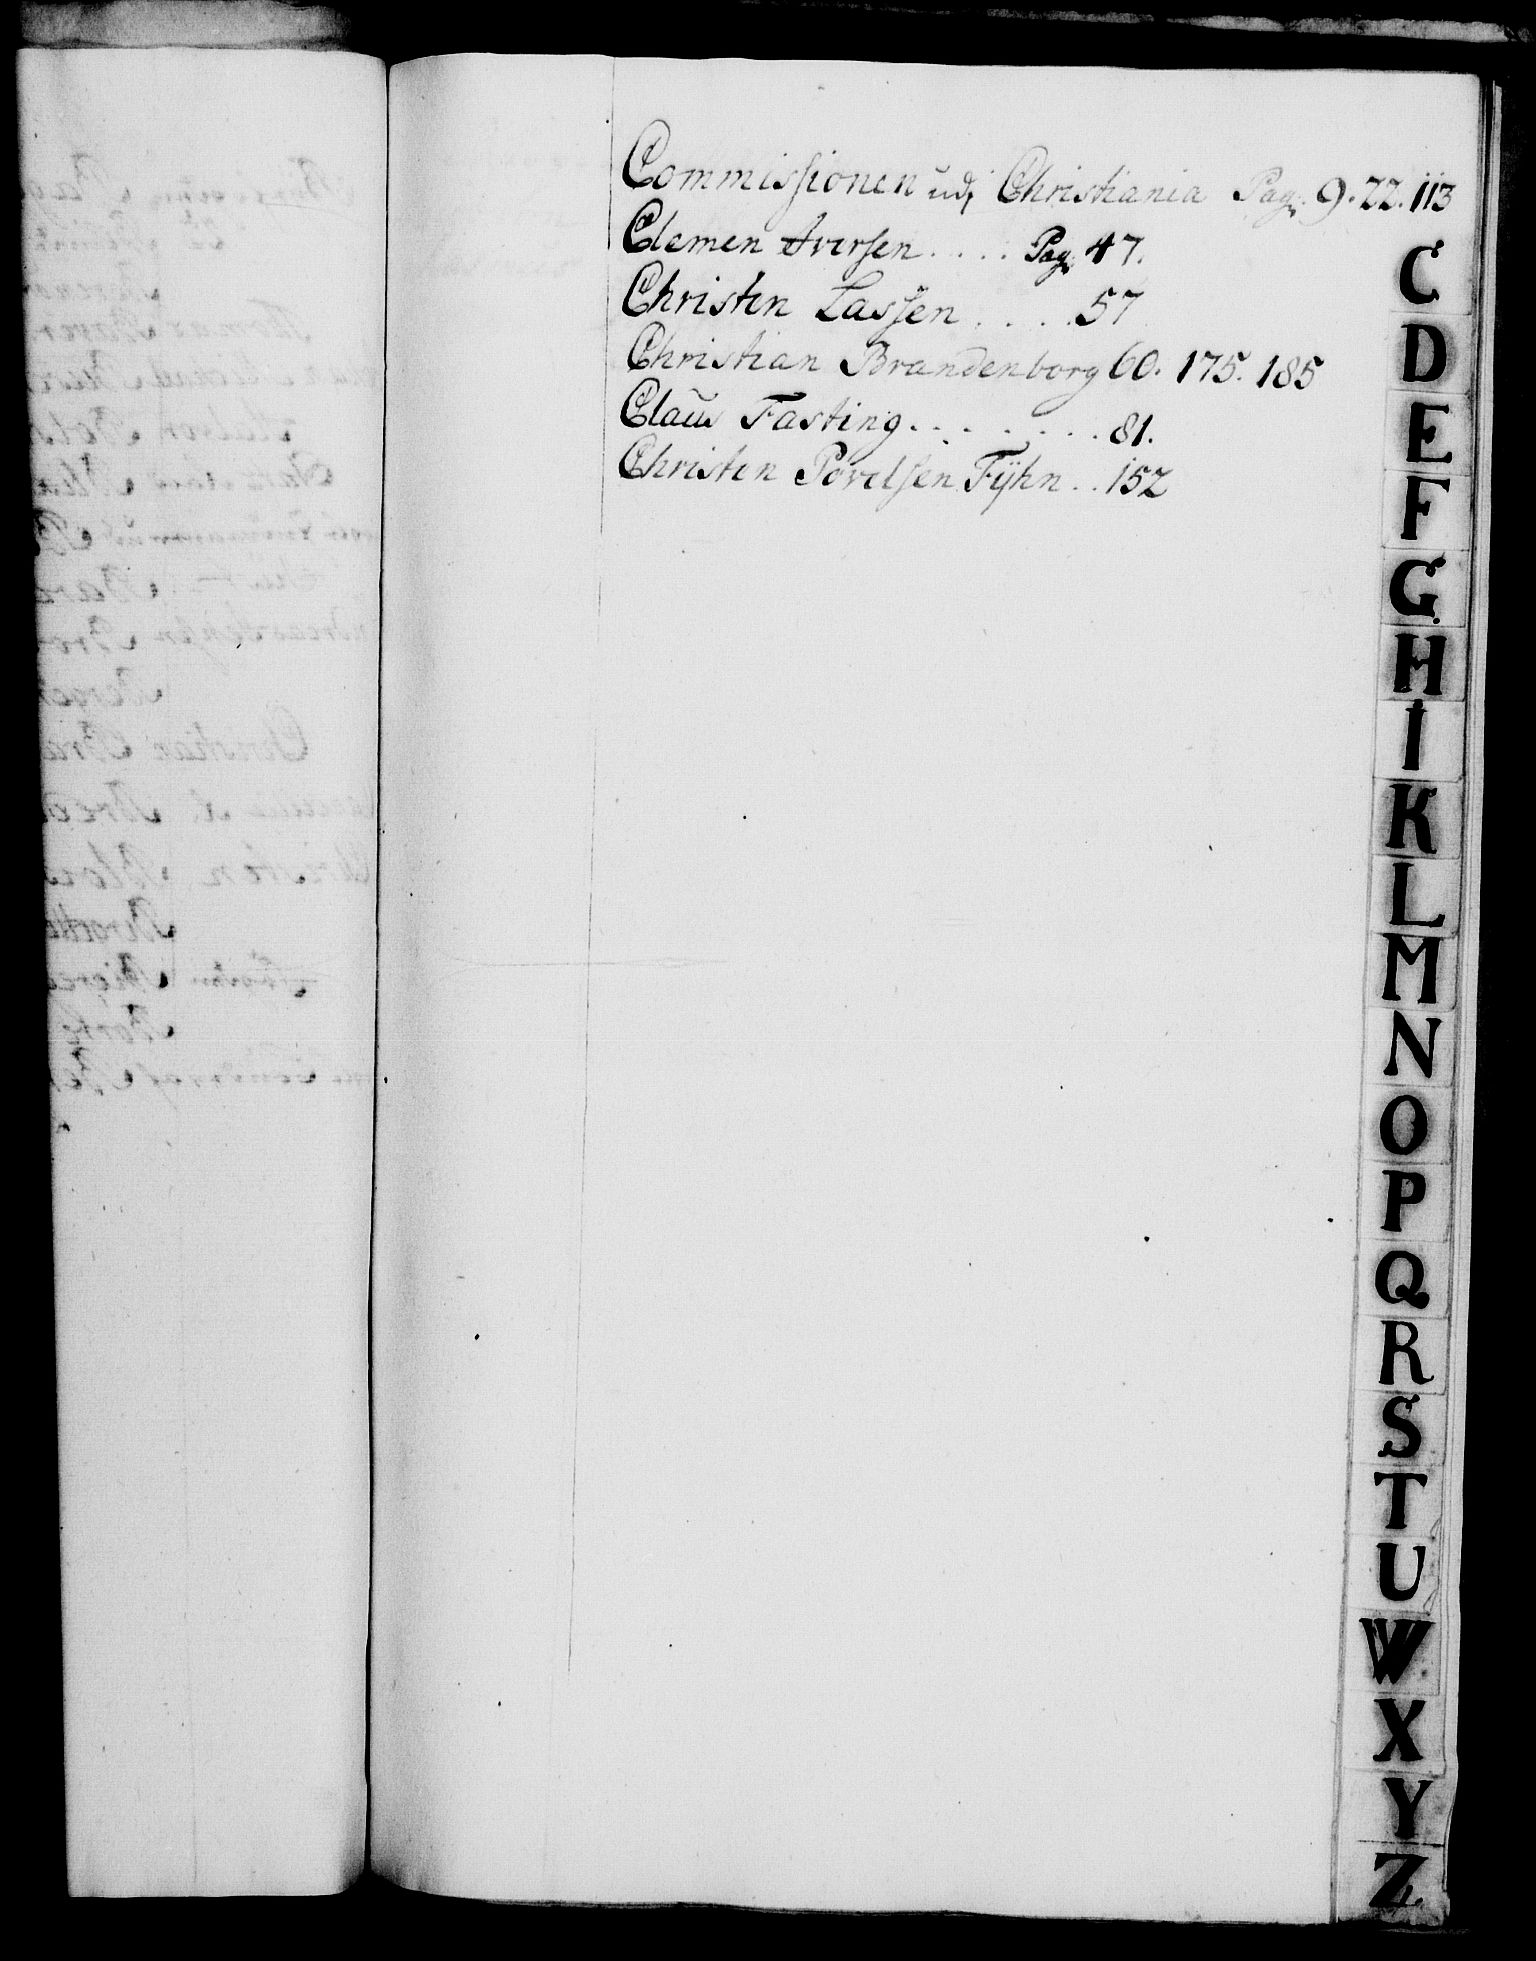 Commissionen udj Christiania Pag. 9. 22. 113
Clemen Iversen ..... Pag. 47.
Christen Lassen .... 57
Christian Brandenborg 60. 175. 185
Claus Fasting ........ 81.
Christen Povelsen Fÿhn .. 152
C
D
E
F
G
H
I
K
L
M
N
O
P
Q
R
S
T
U
W
X
Y
Z